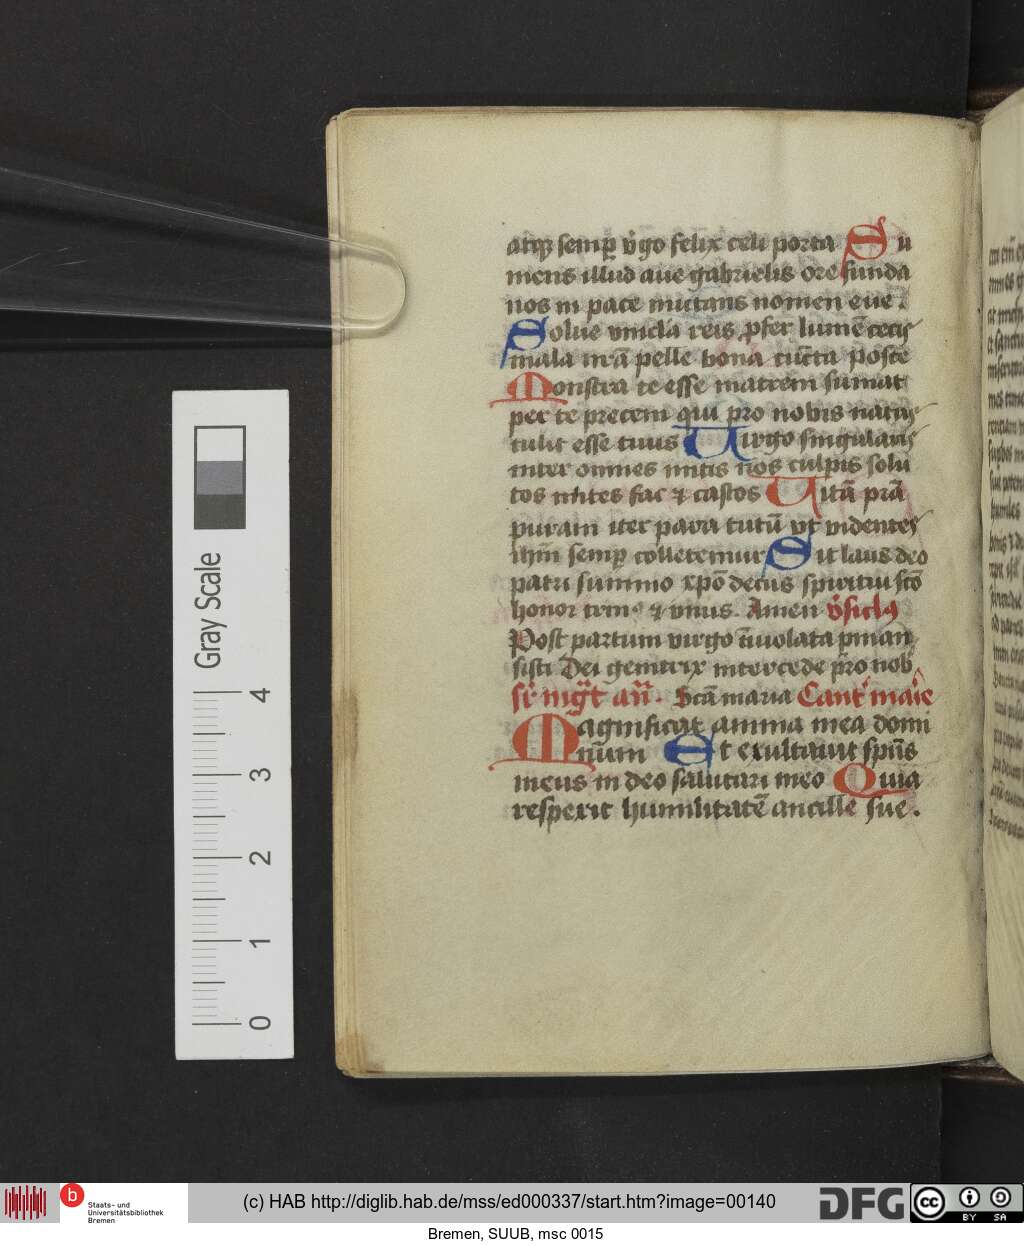 atqꝫ semꝑ v̾go felix celi porta Su
mens illud aue gabrielis ore funda
nos in pace mutans nomen eue .
Solue vincla reis ꝓfer lumē cecis
mala nr̄a pelle bona cūcta posce
Monstra te esse matrem sumat
per te precem qui pro nobis natus
tulit esse tuus Uirgo singularis
inter omnes mitis nos culpis solu
tos mites fac ⁊ castos Uitā prā
puram iter para tutū vt videntes
ihm̄ semꝑ colletemur Sit laus deo
patri summo xp̄o decus spiritui scō
honor trinꝰ ⁊ vnus. Amen v̾siclꝰ
Post partum virgo īuiolata pman
sisti Dei genitrix intercede pro nob
sr̄ mgt̄ an̄. Scā maria Cant̾ marie
Magnificat anima mea domi
nūm Et exultauit spūs
meus in deo salutari meo Quia
respexit humilitatē ancille sue.
Gray Scale
4
3
2
1
0
b
Staats- und
Universitätsbibliothek
Bremen
(c) HAB http://diglib.hab.de/mss/ed000337/start.htm?image=00140
DFG
cc
BY SA
Bremen, SUUB, msc 0015